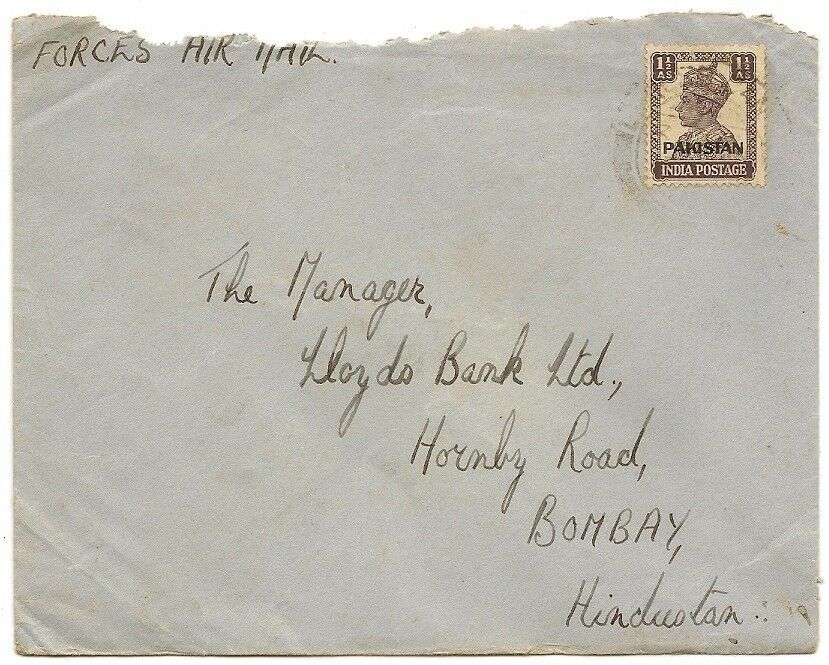 FORCES AIR MAIL.
1½ AS 1½ AS
PAKISTAN
INDIA POSTAGE
The Manager,
Lloyds Bank Ltd.,
Hornby Road,
BOMBAY,
Hindustan.